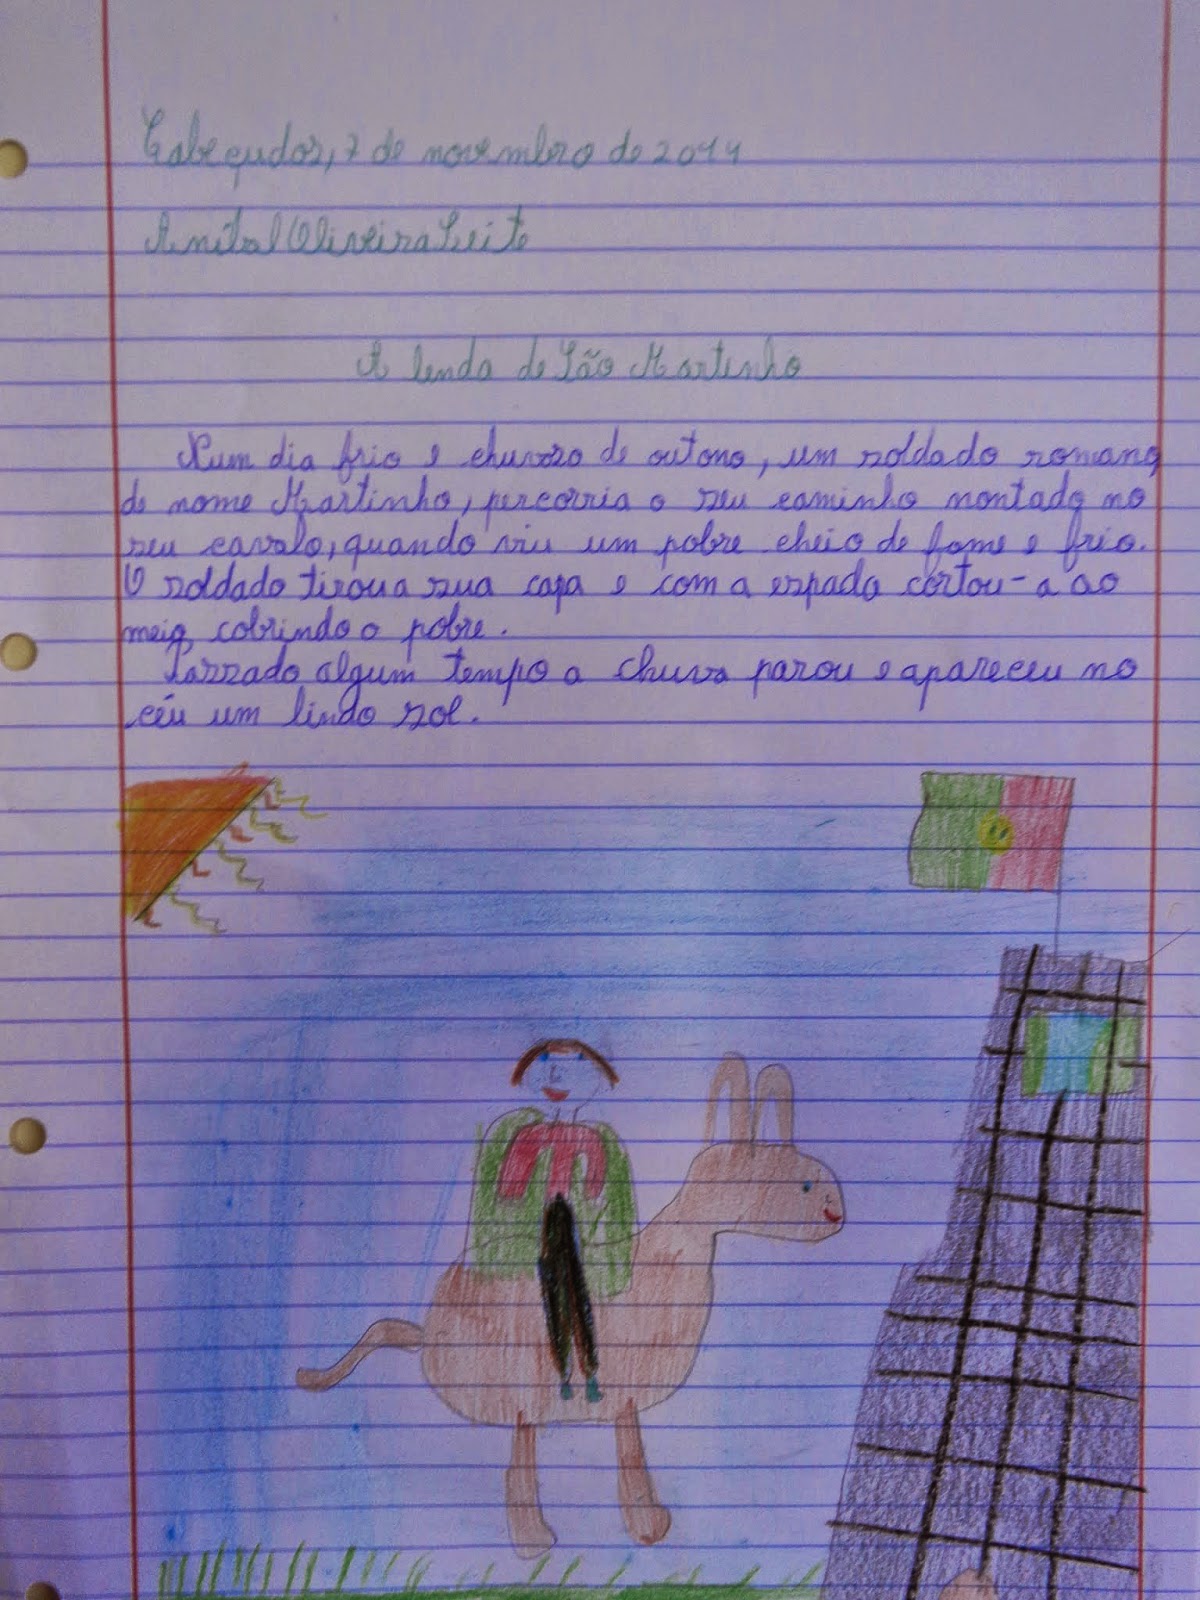 Cabeçudos, 7 de novembro de 2014
Aníbal Oliveira Leite
A lenda de São Martinho
Num dia frio e chuvoso de outono, um soldado romano,
de nome Martinho, percorria o seu caminho montado no
seu cavalo, quando viu um pobre cheio de fome e frio.
O soldado tirou a sua capa e com a espada cortou-a ao
meio, cobrindo o pobre.
Passado algum tempo a chuva parou e apareceu no
céu um lindo sol.